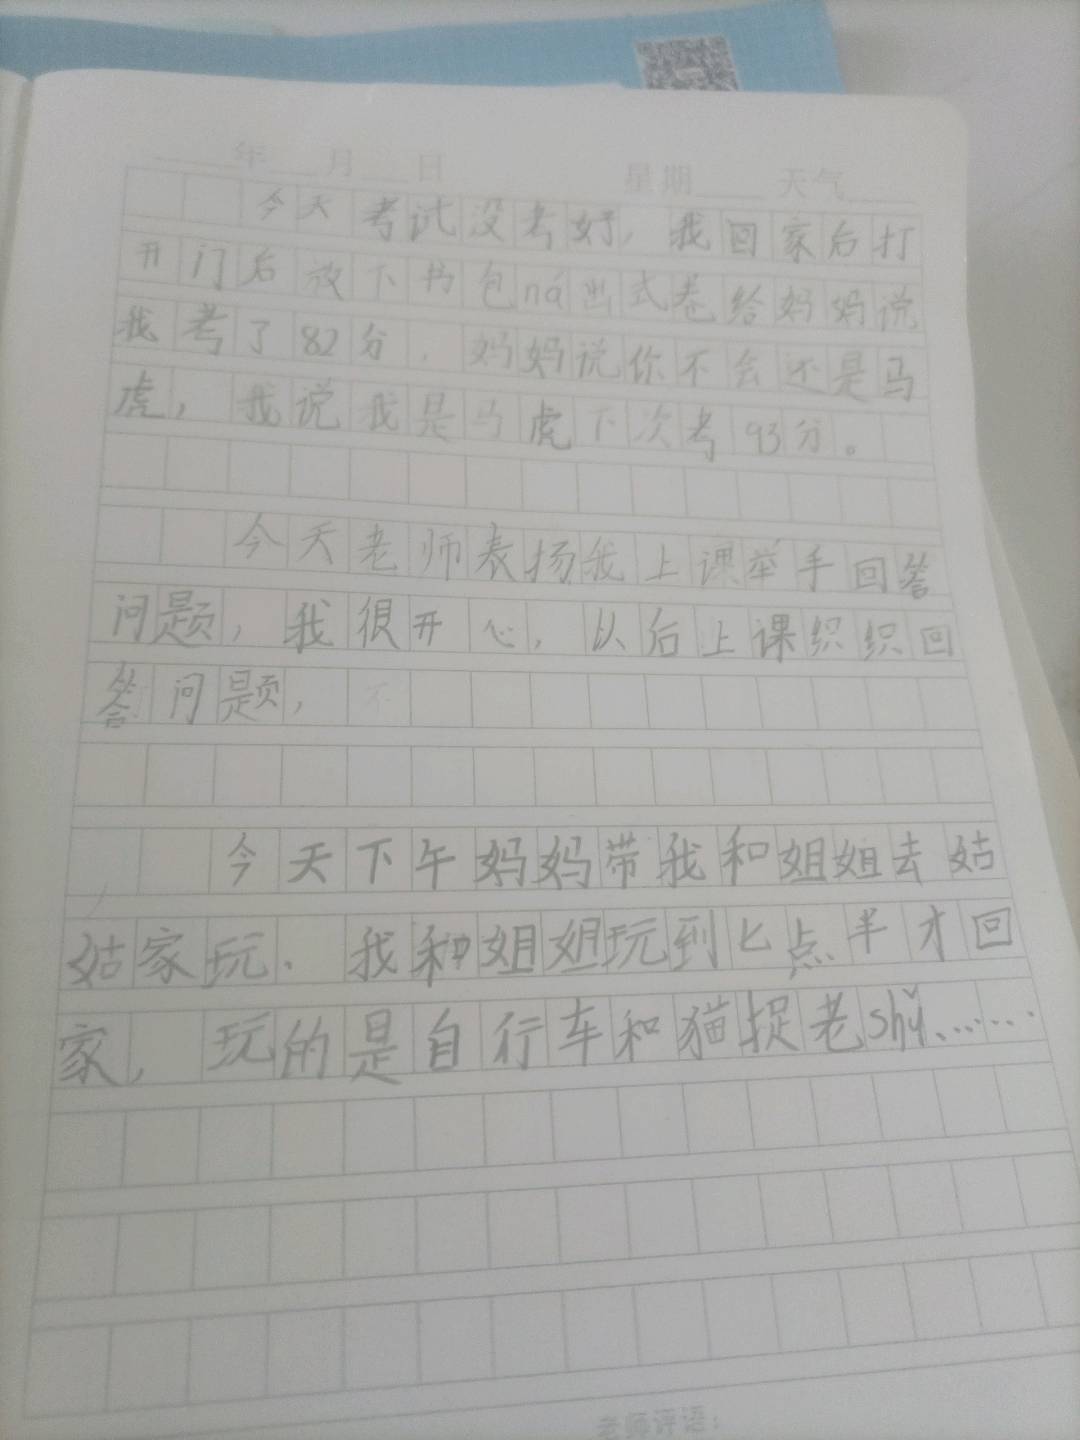 年 月 日 星期 天气
今天考试没考好，我回家后打
开门后放下书包ná出式卷给妈妈说
我考了82分，妈妈说你不会还是马
虎，我说我是马虎下次考93分。
今天老师表扬我上课举手回答
问题，我很开心，以后上课织织回
答问题，
今天下午妈妈带我和姐姐去姑
姑家玩、我和姐姐玩到匕点半才回
家，玩的是自行车和猫捉老shǔ、……
老师评语：